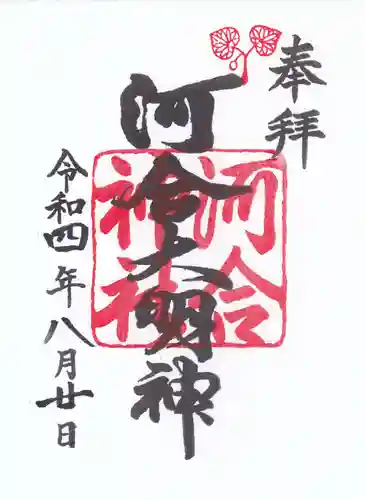 奉拝
河合大明神
河合神社
令和四年八月廿日